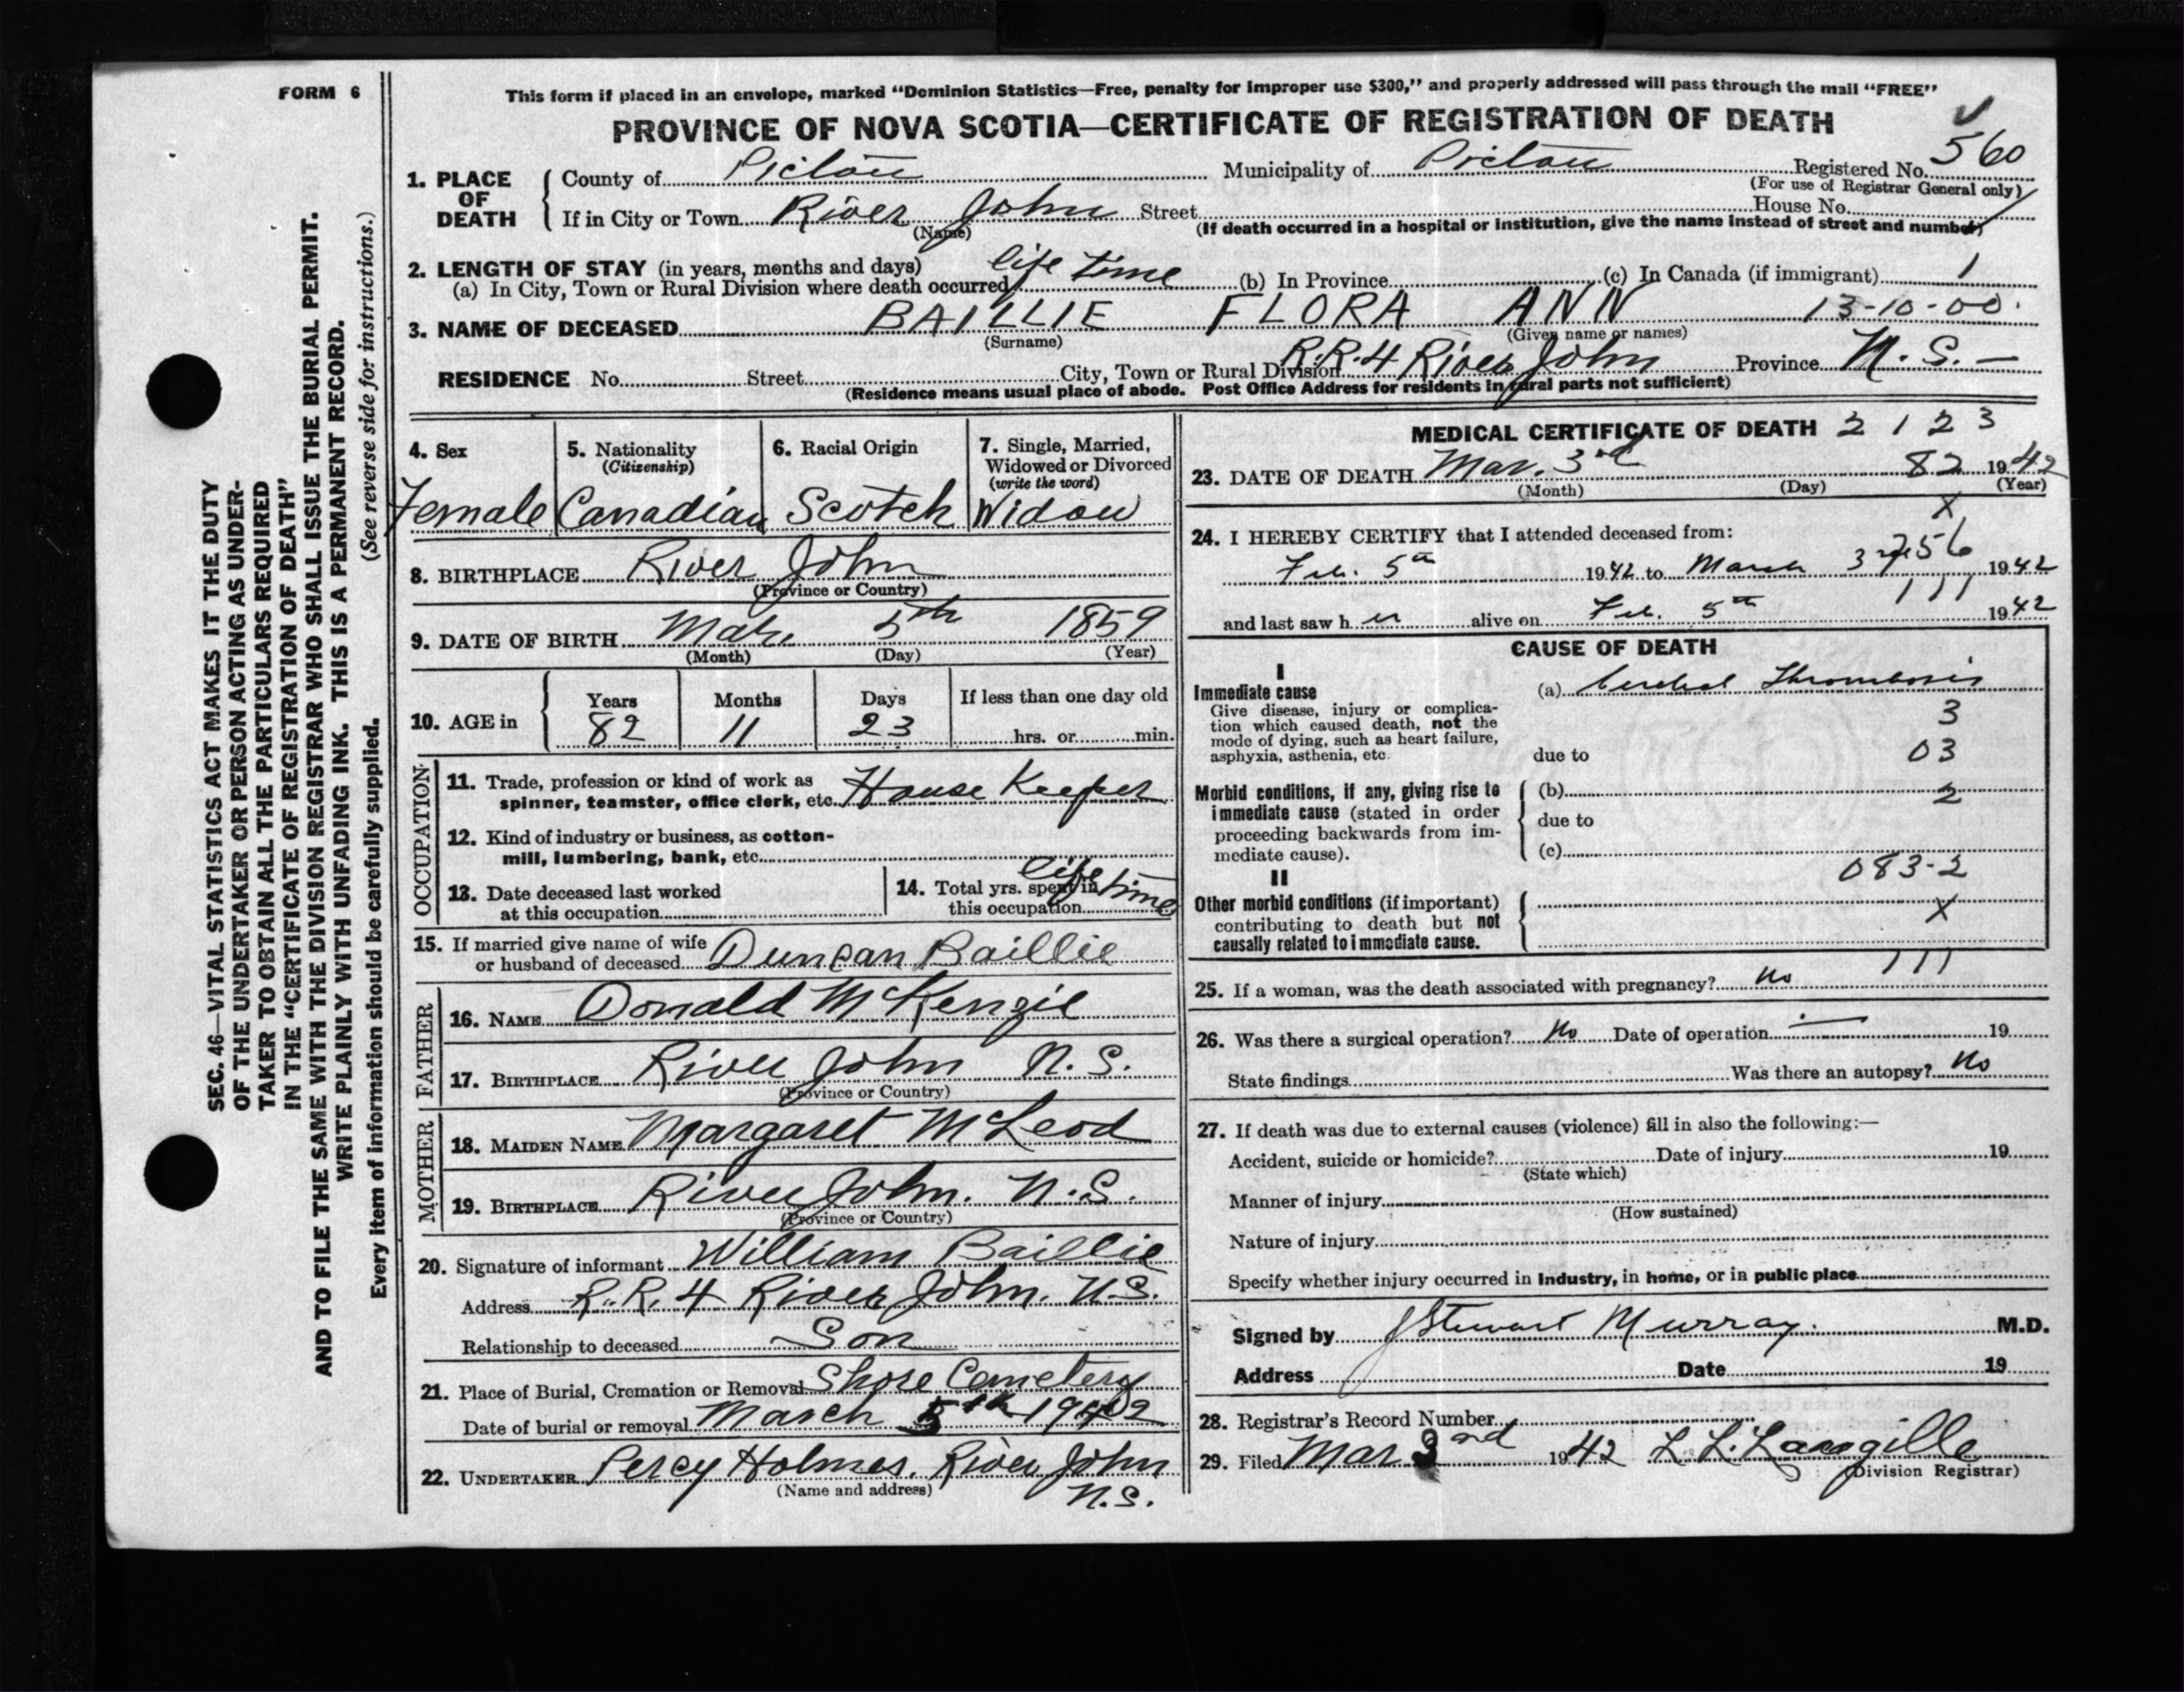 FORM 6
This form if placed in an envelope, marked "Dominion Statistics—Free, penalty for improper use $300," and properly addressed will pass through the mail "FREE"
PROVINCE OF NOVA SCOTIA—CERTIFICATE OF REGISTRATION OF DEATH
1. PLACE OF DEATH
County of Pictou Municipality of Pictou Registered No. 560
(For use of Registrar General only)
If in City or Town River John Street House No.
(Name) (If death occurred in a hospital or institution, give the name instead of street and number)
2. LENGTH OF STAY (in years, months and days)
(a) In City, Town or Rural Division where death occurred life time (b) In Province (c) In Canada (if immigrant) 1
3. NAME OF DECEASED BAILLIE FLORA ANN 13-10-00.
(Surname) (Given name or names)
RESIDENCE No. Street City, Town or Rural Division R.R.4 River John Province N.S.—
(Residence means usual place of abode. Post Office Address for residents in rural parts not sufficient)
4. Sex
Female
5. Nationality
(Citizenship)
Canadian
6. Racial Origin
Scotch
7. Single, Married,
Widowed or Divorced
(write the word)
Widow
8. BIRTHPLACE River John
(Province or Country)
9. DATE OF BIRTH Mar. 5th 1859
(Month) (Day) (Year)
10. AGE in
Years Months Days If less than one day old
82 11 23 hrs. or min.
OCCUPATION
11. Trade, profession or kind of work as
spinner, teamster, office clerk, etc. House Keeper
12. Kind of industry or business, as cotton-
mill, lumbering, bank, etc.
13. Date deceased last worked
at this occupation
14. Total yrs. spent in
this occupation life time
15. If married give name of wife
or husband of deceased Duncan Baillie
FATHER
16. NAME Donald McKenzie
17. BIRTHPLACE River John N.S.
(Province or Country)
MOTHER
18. MAIDEN NAME Margaret McLeod
19. BIRTHPLACE River John. N.S.
(Province or Country)
20. Signature of informant William Baillie
Address R.R.4 River John. N.S.
Relationship to deceased Son
21. Place of Burial, Cremation or Removal Shore Cemetery
Date of burial or removal March 5th 1942
22. UNDERTAKER Percy Holmes. River John
(Name and address) N.S.
MEDICAL CERTIFICATE OF DEATH 2 1 2 3
23. DATE OF DEATH Mar. 3rd 82 1942
(Month) (Day) (Year)
X
24. I HEREBY CERTIFY that I attended deceased from:
756
Feb. 5th 1942 to March 3rd 1942
111
and last saw her alive on Feb. 5th 1942
CAUSE OF DEATH
I
Immediate cause
Give disease, injury or complica-
tion which caused death, not the
mode of dying, such as heart failure,
asphyxia, asthenia, etc.
(a) Cerebral Thrombosis
3
due to 03
Morbid conditions, if any, giving rise to
immediate cause (stated in order
proceeding backwards from im-
mediate cause).
(b) 2
due to
(c)
083-2
II
Other morbid conditions (if important)
contributing to death but not
causally related to immediate cause.
X
111
25. If a woman, was the death associated with pregnancy? No
26. Was there a surgical operation? No Date of operation — 19
State findings Was there an autopsy? No
27. If death was due to external causes (violence) fill in also the following:—
Accident, suicide or homicide? Date of injury 19
(State which)
Manner of injury
(How sustained)
Nature of injury
Specify whether injury occurred in industry, in home, or in public place
Signed by J Stewart Murray. M.D.
Address Date 19
28. Registrar's Record Number
29. Filed Mar 3rd 1942 L. L. Langille
(Division Registrar)
SEC. 46—VITAL STATISTICS ACT MAKES IT THE DUTY
OF THE UNDERTAKER OR PERSON ACTING AS UNDER-
TAKER TO OBTAIN ALL THE PARTICULARS REQUIRED
IN THE "CERTIFICATE OF REGISTRATION OF DEATH"
AND TO FILE THE SAME WITH THE DIVISION REGISTRAR WHO SHALL ISSUE THE BURIAL PERMIT.
WRITE PLAINLY WITH UNFADING INK. THIS IS A PERMANENT RECORD.
(See reverse side for instructions.)
Every item of information should be carefully supplied.